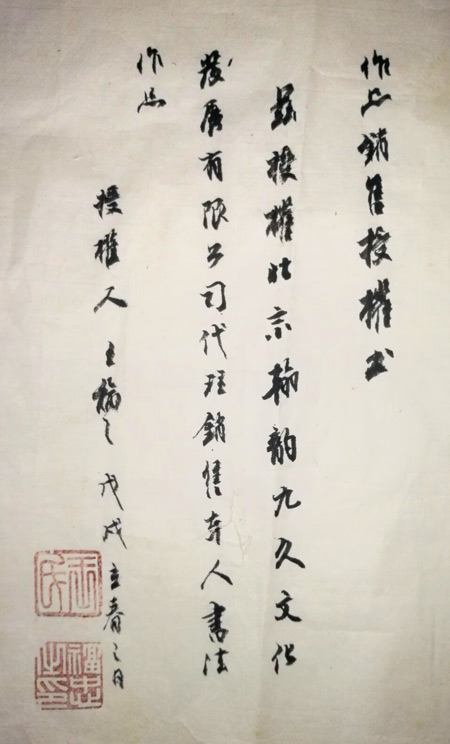 作品銷售授權書
茲授權北京翰韵九久文化
發展有限公司代理銷售本人書法
作品
授權人 王福 戊戌立春之日
王氏
福忠之印